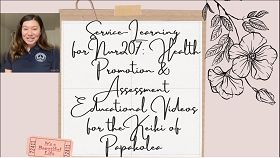 Service-Learning
for Nurs207: Health
Promotion &
Assessment
Educational Videos
for the Keiki of
Papakolea
It's a
Beautiful
Life